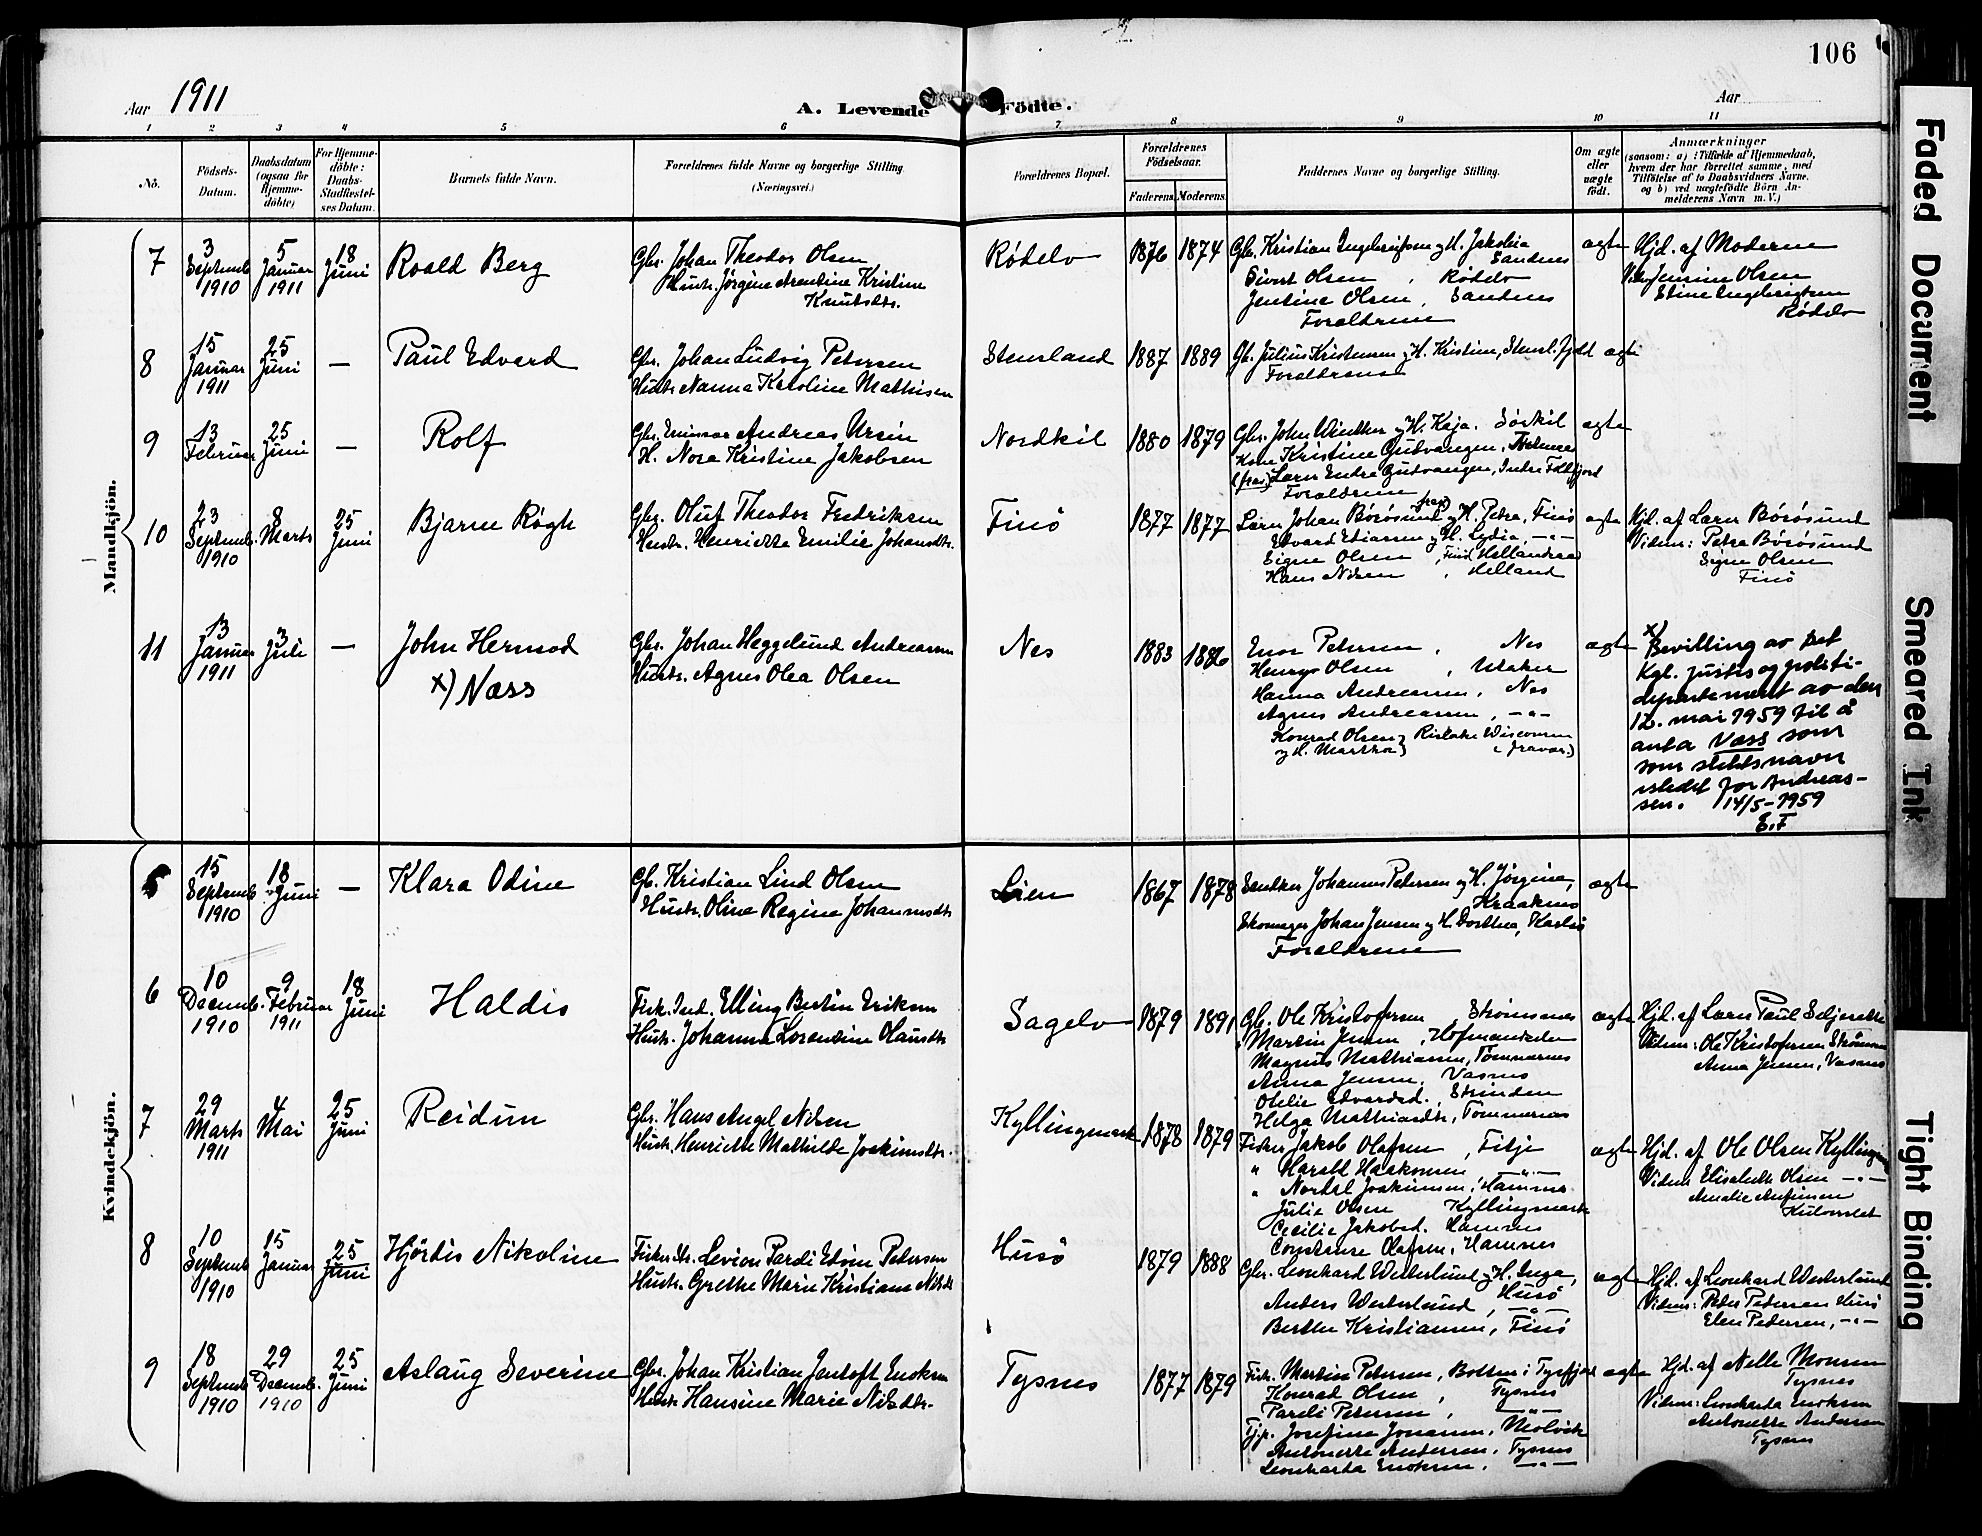 106
Aar 1911
A. Levende Födte.
Aar
1 2 3 4 5 6 7 8 9 10 11
No.
Födsels-
Datum.
Daabsdatum
(ogsaa for
Hjemme-
döbte)
For Hjemme-
döbte:
Daabs-
Stadfæstel-
ses Datum.
Barnets fulde Navn.
Forældrenes fulde Navne og borgerlige Stilling
(Næringsvei.)
Forældrenes Bopæl.
Forældrenes
Födselsaar.
Faderens Moderens
Faddernes Navne og borgerlige Stilling.
Om ægte
eller
uægte
födt.
Anmærkninger
(saasom: a) i Tilfælde af Hjemmedaab,
hvem der har forrettet samme, med
Tilföielse af to Daabsvidners Navne,
og b) ved uægtefödte Börn An-
melderens Navn m. V.)
Mandkjön.
7
3
Septemb
1910
5
Januar
1911
18
Juni
Roald Berg
Gbr. Johan Theodor Olsen
Hustr. Jørgine Arentine Kristine
Knutsdtr.
Rödelv
1876 1874
Gbr. Kristian Engebrigtsen og H. Jakobia
Sandnes
Sivert Olsen, Rödelv
Jentine Olsen, Sandnes
Forældrene
ægte
Hjd. af Moderen
Vidn. Jensine Olsen
Stine Engebrigtsen
Rödelv
8
15
Januar
1911
25
Juni
—
Paul Edvard
Gbr. Johan Ludvig Petersen
Hustr. Nanna Karoline Mathisen
Stensland
1887 1889
Gb. Julius Kristensen og H. Kristine, Stensl. fjeld
Forældrene
ægte
9
13
Februar
25
Juni
—
Rolf
Gbr. Andreas Ursin
H. Nora Kristine Jakobsen
Nordkil
1880 1879
Gbr. John Winther og H. Kaja. Sörkil
Kone Kristine Gudvangen,
(frav) Lærer Endre Gudvangen, Indre
Forældrene
ægte
10
23
Septemb.
1910
8
Marts
25
Juni
Bjarne Røgh
Gbr. Oluf Theodor Fredriksen
Hustr. Henriette Emilie Johansdtr.
Finö
1877 1877
Lærer Johan Börösund frav. og H. Petra, Finö
Edvard Ediassen og H. Lydia, —"—
Signe Olsen, Finö
Hans Nilsen, Helland
ægte
Hjd. af Lærer Börösund
Vidne: Petra Börösund
Signe Olsen
Finö
11
13
Januar
1911
3
Juli
—
John Hermod
x) Næss
Gbr. Johan Heggelund Andreassen
Hustr. Agnes Olea Olsen
Nes
1883 1886
Enok Petersen, Nes
Henry Olsen, Ulsaker
Hanna Andreassen, Nes
Agnes Andreassen, —"—
Konrad Olsen } Rislake Wisconsin
og H. Martha } (fravær.)
ægte
x) Bevilling av det
Kgl. justis og politi-
departement av den
12. mai 1959 til å
anta Næss som
som slektsnavn
istedet for Andreas-
sen. 14/5-1959
E.F
Kvindekjön.
5
15
Septemb
1910
18
Juni
—
Klara Odine
Gb. Kristian Lind Olsen
Hustr. Oline Regine Johannesdtr
Lien
1867 1878
Johannes Petersen og H. Jörgine,
Kraaknes
Skomager Johan Jensen og H. Dorthea, Karlsö
Forældrene
ægte
6
10
Decemb.
1910
9
Februar
1911
18
Juni
Haldis
Fisk. Ind. Elling Bertin Eriksen
Hustr. Johanna Lorentine Olausdtr
Sagelv
1879 1891
Gb. Ole Kristofersen, Strömsnes
" Martin Jensen,
Magnus Mathiasen, Tömmernes
Anna Jensen, Vasnes
Otelie Edvardsd., Strinden
Helga Mathiasdtr, Tömmernes
ægte
Hjd. af Lærer Paul Seljesette
Vidne: Ole Kristofersen Strömsn
Anna Jensen, Vasnes
7
29
Marts
1911
4
Mai
25
Juni
Reidun
Gbr. Hans Angel Nilsen
Hustr. Henriette Mathilde Joakimsdtr.
Kyllingmark
1878 1879
Fisker Jakob Olafsen, Filje
" Harald Haakonsen, —"—
" Nordal Joakimsen, Hamnes
Julie Olsen Kyllingmark
Cecilie Jakobsd. Hamnes
Constanse Olafsen, Hamnes
ægte
Hjd. af Ole Olsen Kyllingm
Vidne Elisabeth Olsen —"—
Amalie
8
10
Septemb
1910
15
Januar
25
Juni
Hjördis Nikoline
Fisker Str. Levion Pardi Edvin Petersen
Hustr. Grethe Marie Kristiane Nilsdtr
Husö
1879 1888
Gbr. Leonhard Westerlund og H. Inga,
Husö
Anders Westerlund, —"—
Berthe Kristiansen, Finö
ægte
Hjd. af Leonhard Westerlund
Vidne: Peder Pedersen Husö
Elen Pedersen, —"—
9
18
Septemb
1910
29
Decemb.
1910
25
Juni
Aslaug Severine
Gbr. Johan Kristian Jentoft Enoksen
Hustr. Hansine Marie Nilsdtr.
Tysnes
1877 1879
Fisk. Martin Petersen, Botten i Tysfjord
Konrad Olsen, Tysnes
Pareli Petersen, —"—
Tjp. Josefine Jonassen, Molvik
Antonette Andersen, Tysnes
Leonharda Enoksen, —"—
ægte
Hjd. af Nelle Monsen
Tysnes
Vidne: Leonharda Enoksen
Antonette Andersen
Tysnes
Faded Document
Smeared Ink
Tight Binding